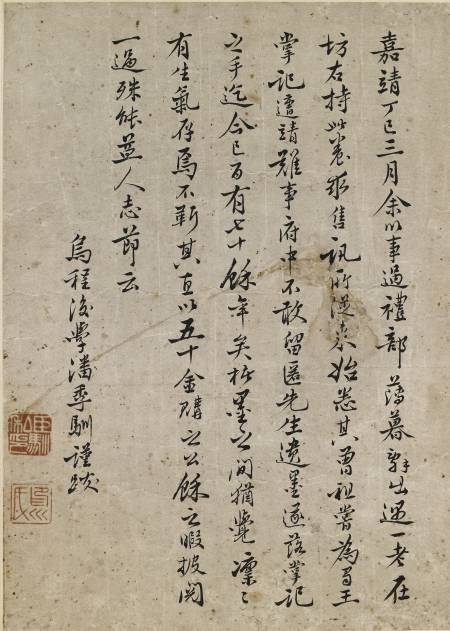 嘉靖丁巳三月余以事過禮部薄暮辭出遇一老在
坊右持此卷求售訊所從來始悉其曾祖嘗為蜀王
掌記遭靖難事府中不敢留匿先生遺墨遂落掌記
之手迄今已百有七十餘年矣楮墨之間猶覺凜〻
有生氣存焉不靳其直以五十金購之公餘之暇披閱
一過殊能益人志節云
烏程後學潘季馴謹跋